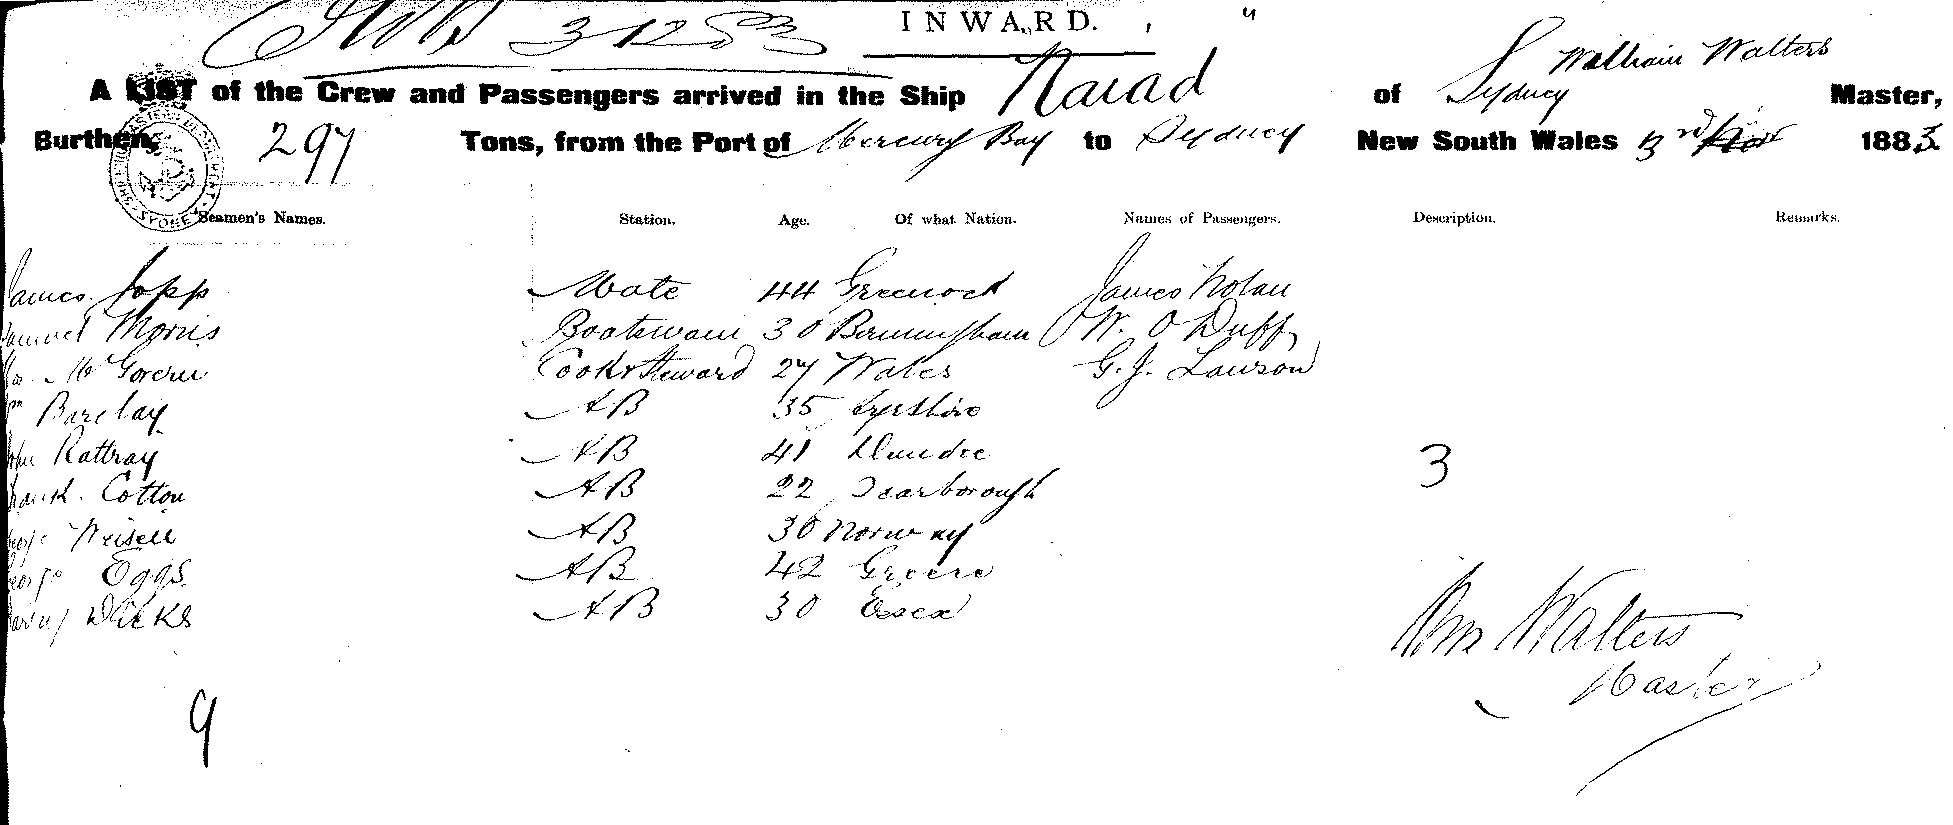 3 12 83
INWARD.
William Walters
A LIST of the Crew and Passengers arrived in the Ship Naiad of Sydney Master,
Burthen, 297 Tons, from the Port of Mercury Bay to Sydney New South Wales 3rd 1883
Seamen's Names. Station. Age. Of what Nation. Names of Passengers. Description. Remarks.
James Jopp Mate 44 Greenock James Nolan
Samuel Morris Boatswain 30 Birmingham W. O Duff
Mc Govern Cook & Steward 27 Wales G. J. Lawson
Wm Barclay AB 35 Ayrshire
John Rattray AB 41 Dundee
Frank Cotton AB 22 Scarborough
3
George AB 30 Norway
George Eggs AB 42 Greece
Harry Dicks AB 30 Essex
Wm Walters
Master
9